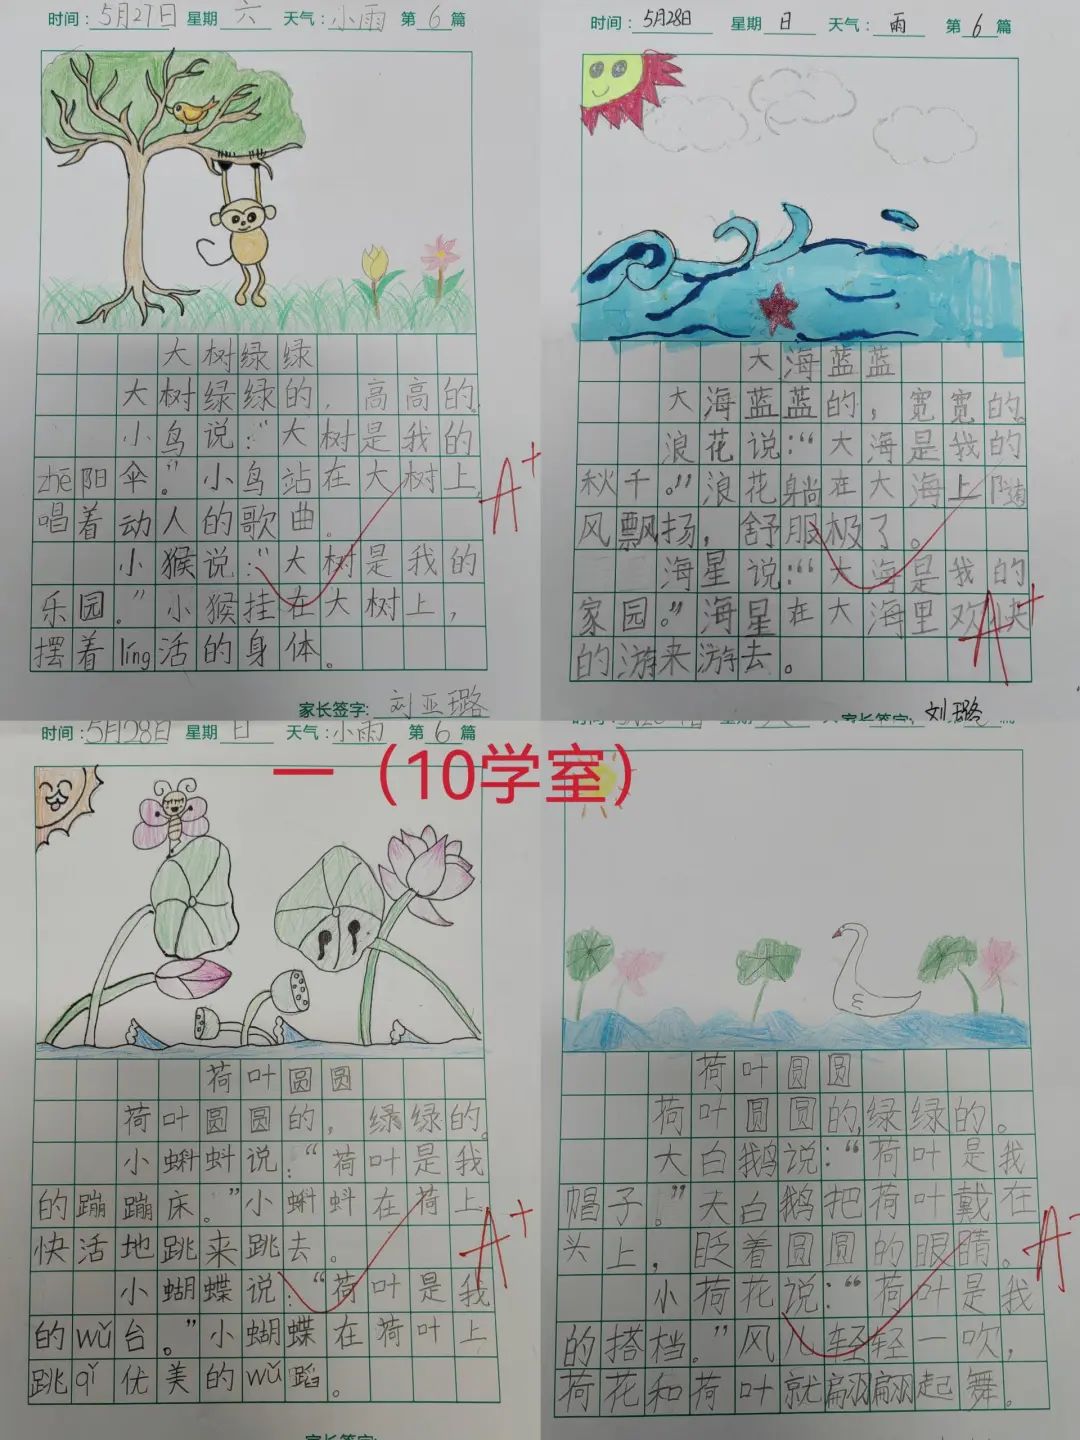 时间：5月27日 星期 六 天气：小雨 第 6 篇
大树绿绿
大树绿绿的，高高的。
小鸟说：“大树是我的
zhē阳伞。”小鸟站在大树上
唱着动人的歌曲。
小猴说：“大树是我的
乐园。”小猴挂在大树上，
摆着líng活的身体。
A+
家长签字：刘亚璐
时间：5月28日 星期 日 天气：雨 第 6 篇
大海蓝蓝
大海蓝蓝的，宽宽的。
浪花说：“大海是我的
秋千。”浪花躺在大海上随
风飘扬，舒服极了。
海星说：“大海是我的
家园。”海星在大海里欢快
的游来游去。
A+
家长签字：刘璐
一（10学室）
时间：5月28日 星期 日 天气：小雨 第 6 篇
荷叶圆圆
荷叶圆圆的，绿绿的。
小蝌蚪说：“荷叶是我
的蹦蹦床。”小蝌蚪在荷上
快活地跳来跳去。
小蝴蝶说：“荷叶是我
的wǔ台。”小蝴蝶在荷叶上
跳qǐ优美的wǔ蹈。
A+
荷叶圆圆
荷叶圆圆的,绿绿的。
大白鹅说：“荷叶是我
帽子。”大白鹅把荷叶戴在
头上，眨着圆圆的眼睛。
小荷花说：“荷叶是我
的搭档。”风儿轻轻一吹，
荷花和荷叶就翩翩起舞。
A